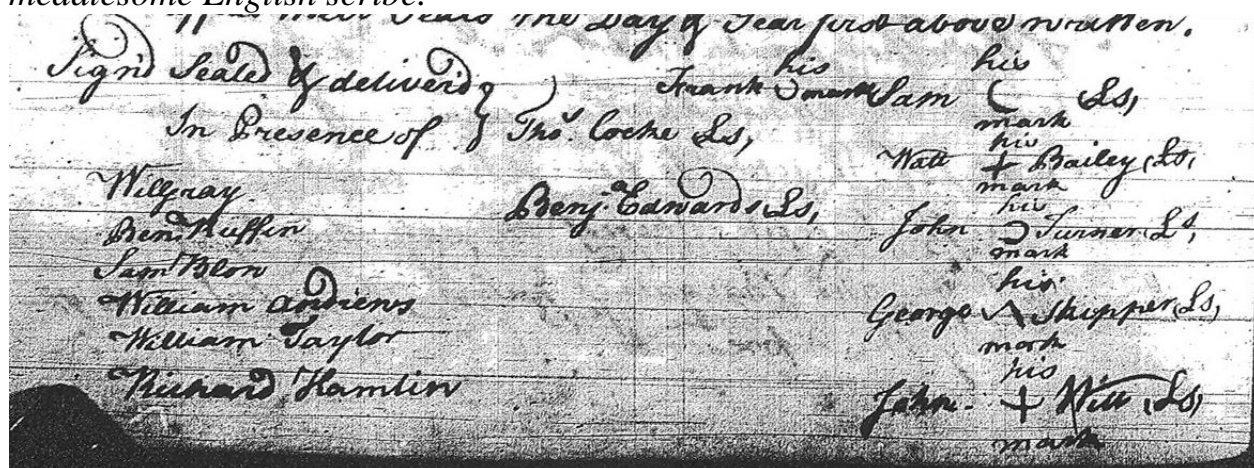 meddlesome English scribe.
their Years the Day & Year first above written.
Sign'd Sealed & deliver'd
In Presence of
Will Gray
Benj. Ruffin
Sam.l
William Andrews
William Taylor
Richard Hamlin
Tho.s Cocke Ls,
Benj.a Edwards Ls,
his
Frank mark
his
Sam ( Ls,
mark
his
Watt + Bailey Ls,
mark
his
John Turner Ls,
mark
his
George Skipper Ls,
mark
his
John + Witt Ls,
mark